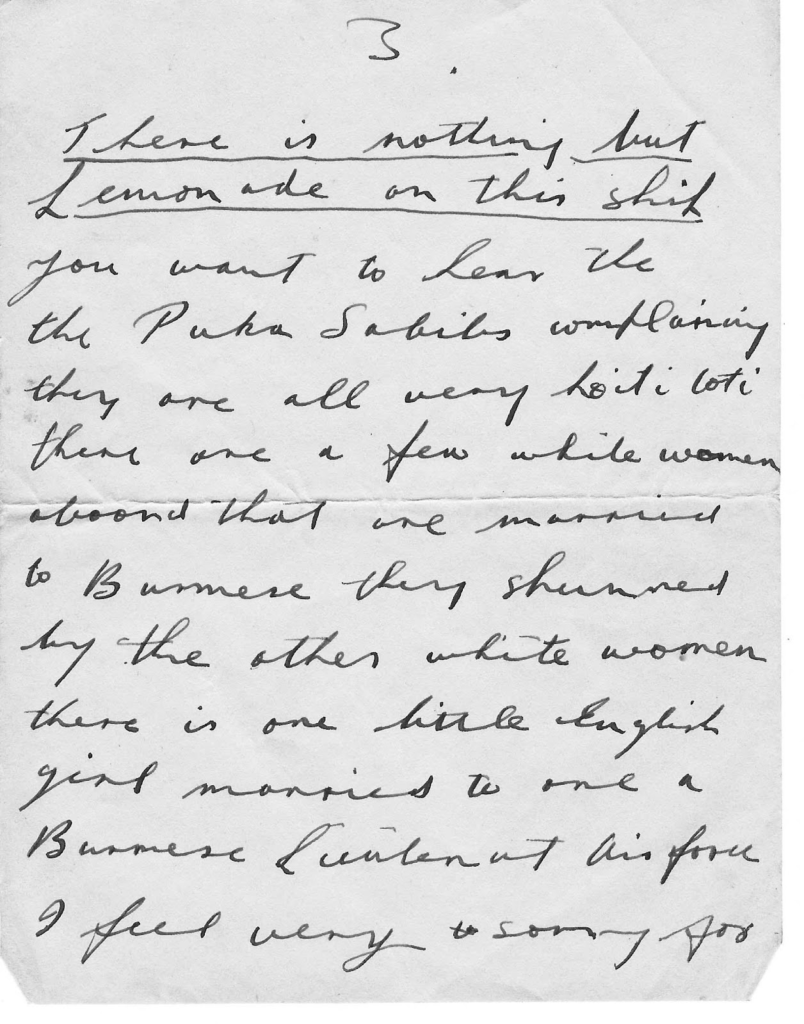 3.
There is nothing but
Lemonade on this ship
you want to hear the
the Puka Sahibs complaining
they are all very hoiti toti
there are a few white women
aboord that are married
to Burmese they shunned
by the other white women
there is one little English
girl married to one a
Burmese Lieutenant Airforce
I feel very sorry for